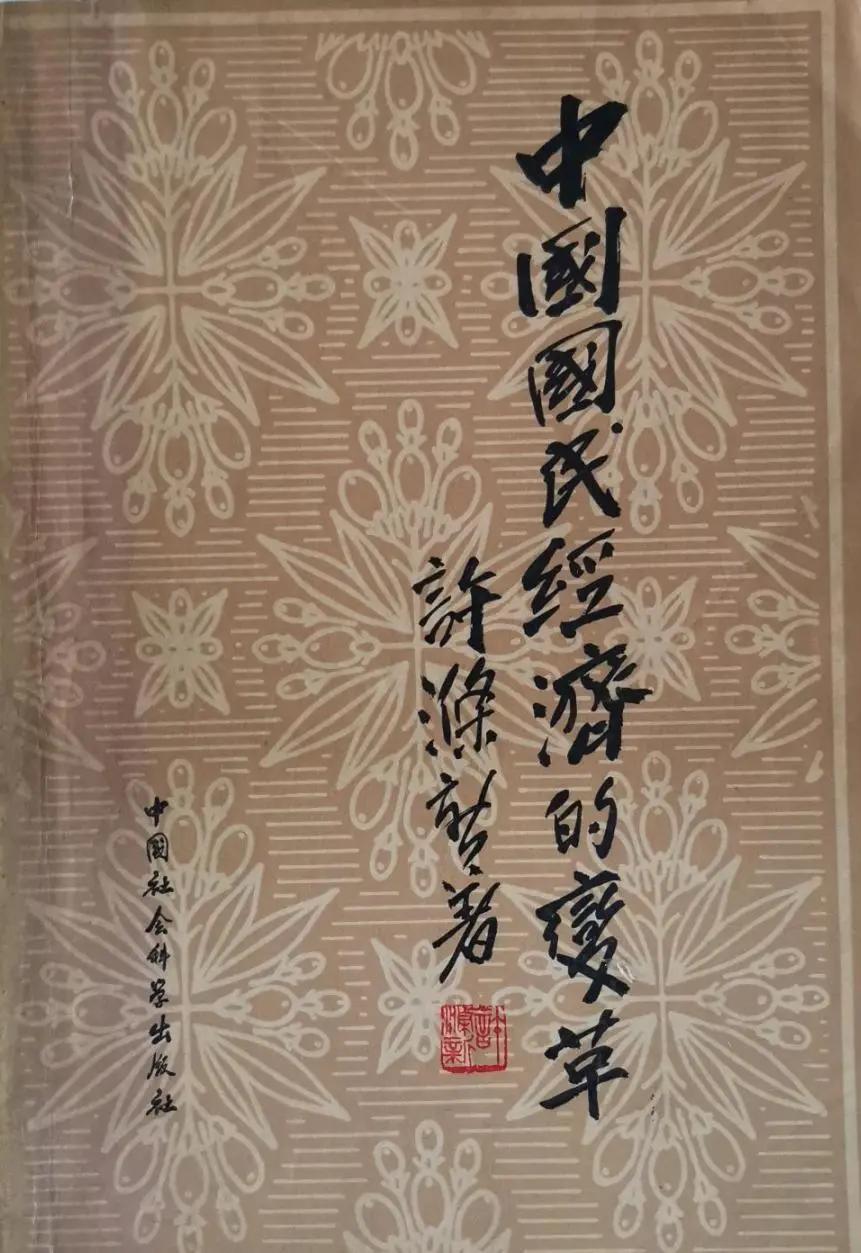 中國國民經濟的變革
許滌新著
許滌新
中國社会科学出版社